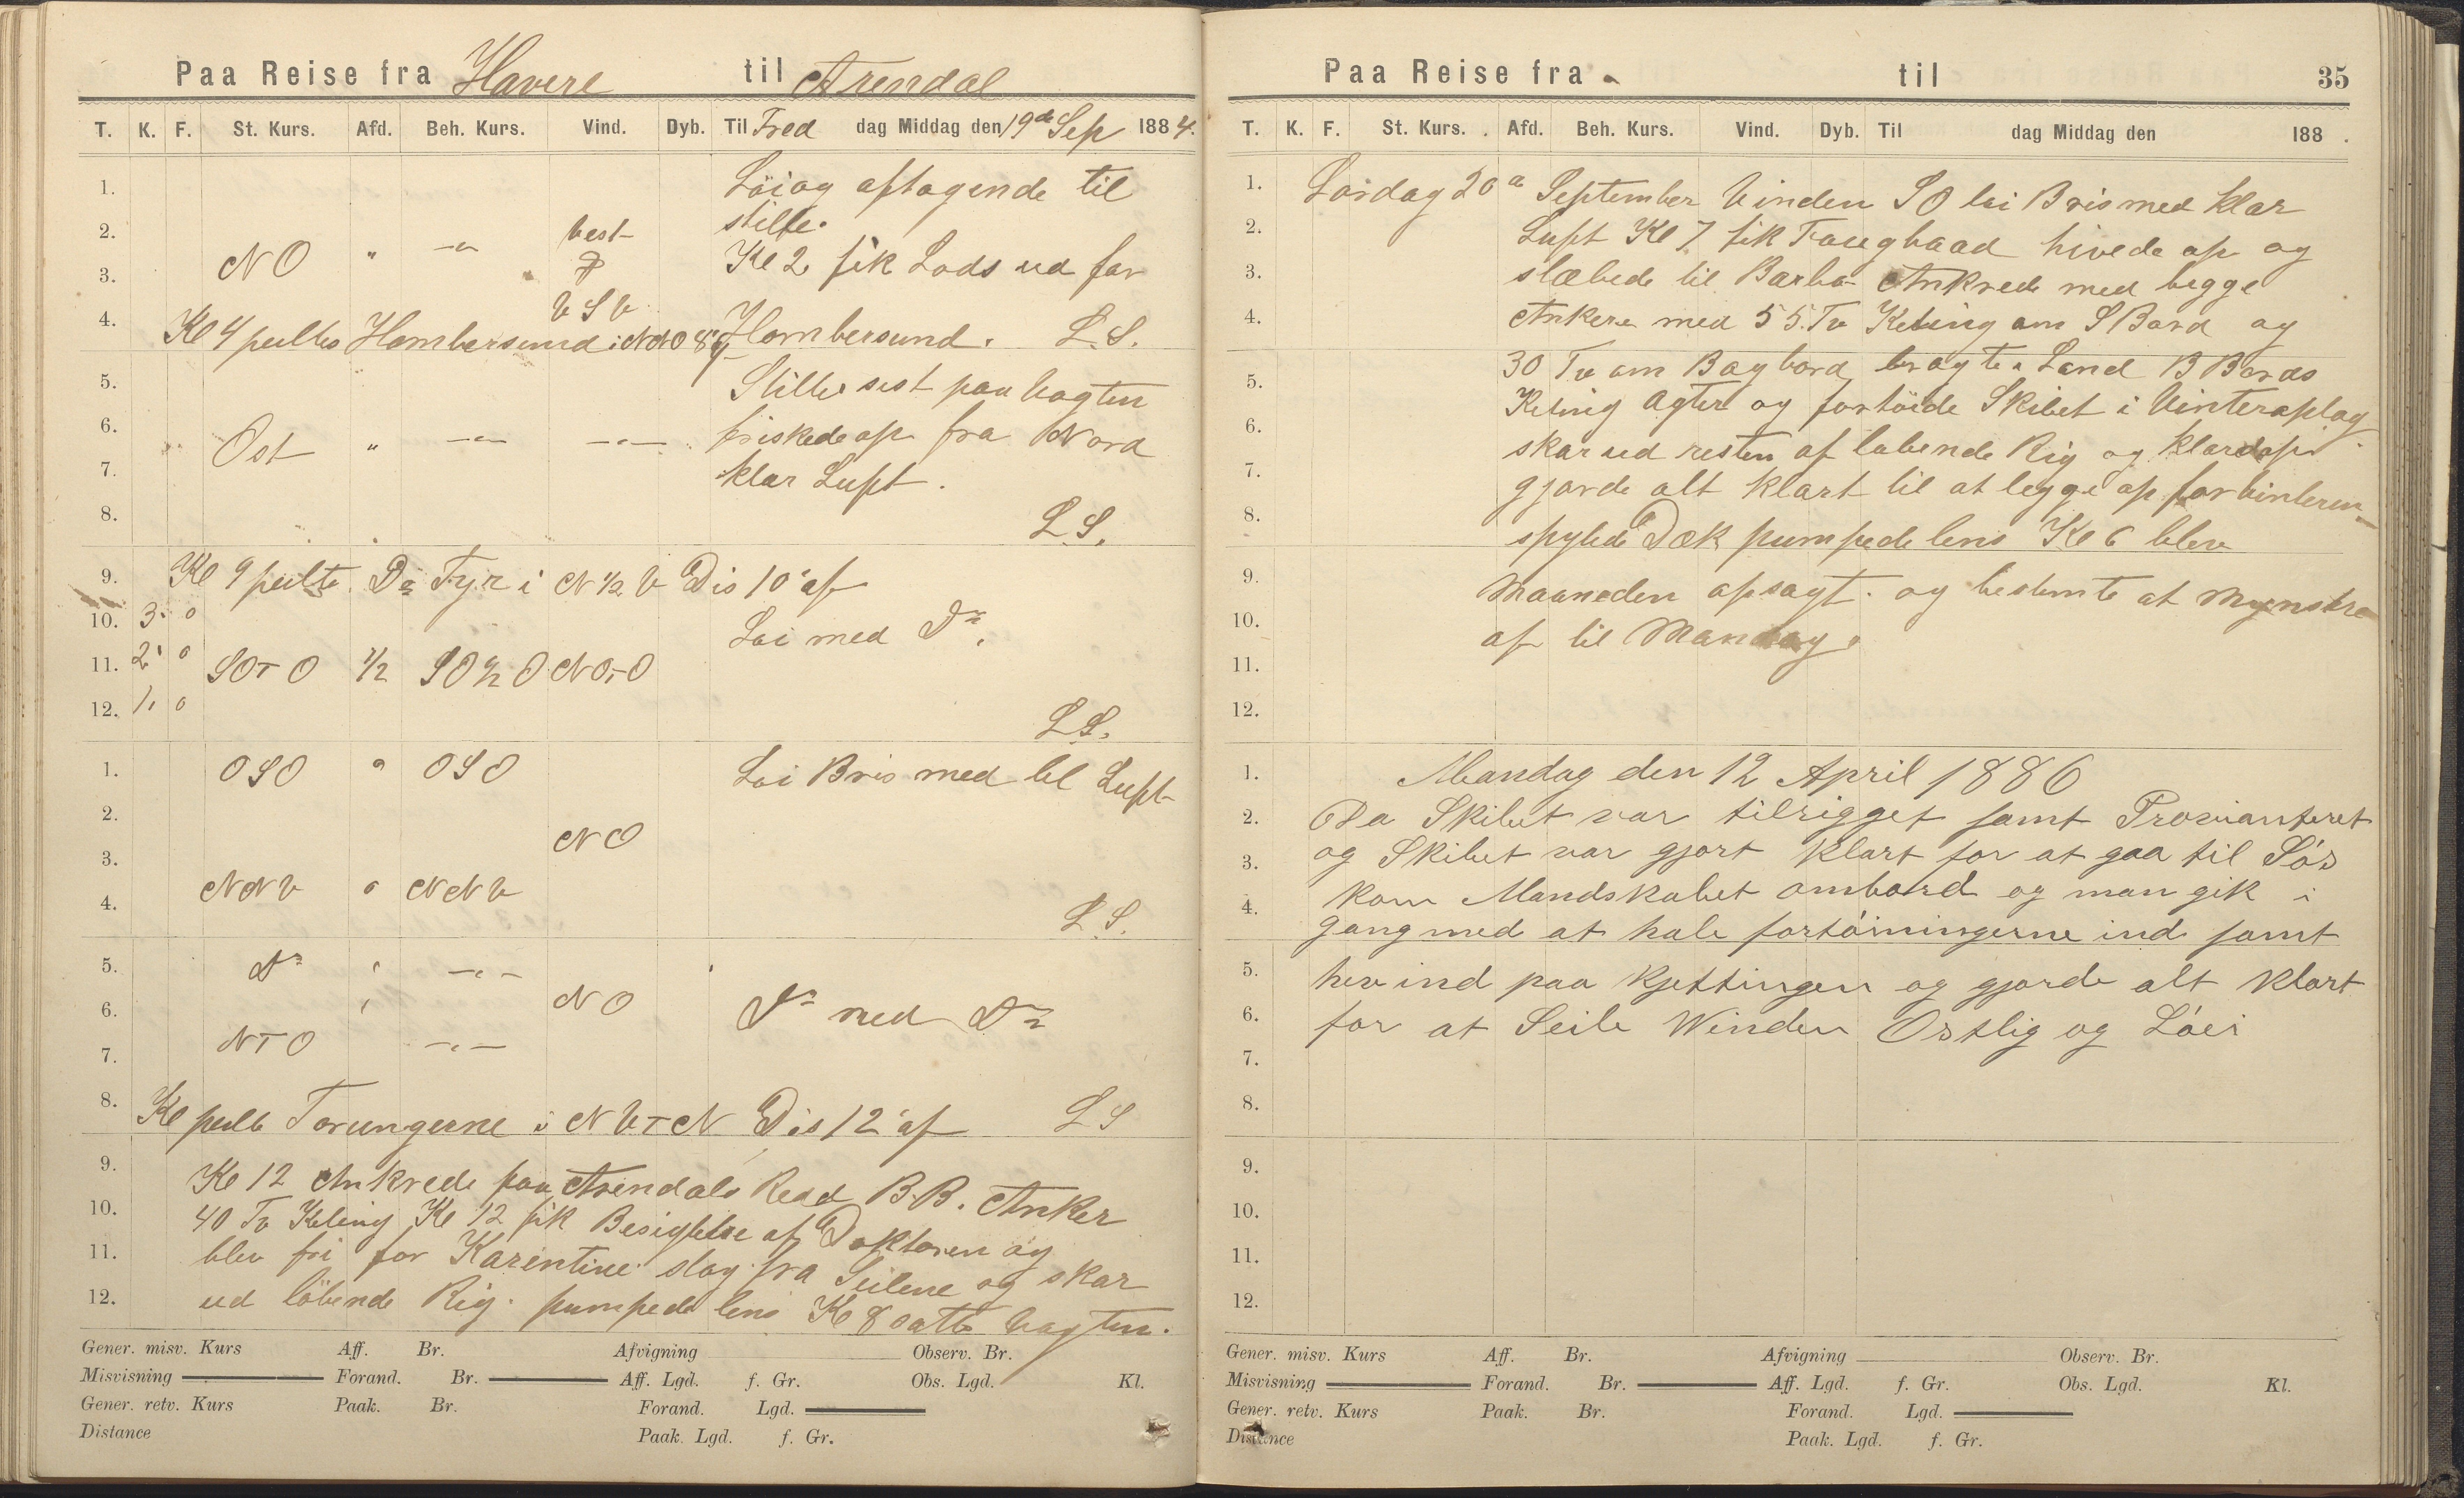 Paa Reise fra Havere til Arendal
T. K. F. St. Kurs. Afd. Beh. Kurs. Vind. Dyb. Til Fred dag Middag den 19de Sep 1884.
1. Löiog aftagende til
2. Vest stille.
3. NO " -"- Kl 2 fik Lods ud for
4. VSV
Kl 4 peilte Hombersund i NNO Hombersund. L.S.
5. Stille sist paa Vagten
6. Ost " -"- -"- friskede op fra Nord
7. klar Luft.
8. L.S.
9. Kl 9 peilte Do Fyr i N ½ V Dis 10' af
10. 3. 0 Löi med Do.
11. 2' 0 SOTO ½ SO ½ O NOTO
12. 1, 0
L.S.
1. OSO " OSO Löi Bris med kl Luft
2.
NO
3.
4. NNV " NNV
L.S.
5. Do " -"-
6. " NO Do med Do
7. NTO -"-
8. Kl peilte Torungerne i NVTN Dis 12' af LS
9. Kl 12 Ankrede paa Arendals Red B.B. Anker
10. 40 Fv Keting Kl 12 fik Besigtelse af Doktoren og
11. blev fri for Karentine slog fra Seilene og skar
12. ud löbende Rig. pumpede lens Kl 8 satte Vagten.
Gener. misv. Kurs Aff. Br. Afvigning Observ. Br.
Misvisning Forand. Br. Aff. Lgd. f. Gr. Obs. Lgd. Kl.
Gener. retv. Kurs Paak. Br. Forand. Lgd.
Distance Paak. Lgd. f. Gr.
Paa Reise fra til 35
T. K. F. St. Kurs. Afd. Beh. Kurs. Vind. Dyb. Til dag Middag den 188 .
1. Lördag 20de September Vinden SO löi Bris med klar
2. Luft Kl 7 fik Taugbaad hivede op og
3. slæbede til Barbo Ankrede med begge
4. Ankere med 55 Fv Keting om S Bord og
5. 30 Fv om Bagbord bragte i Land B Bords
6. Keting Agter og fortöide Skibet i Vinteroplag
7. skar ud resten af löbende Rig og klarede op
gjorde alt klart til at legge op for Vinteren
8. spylede Dæk pumpede lens Kl 6 blev
9. Maaneden opsagt. og bestemte at mynstre
10. af til Mandag.
11.
12.
1. Mandag den 12 April 1886
2. Da Skibet var tilrigget samt Provianteret
3. og Skibet var gjort klart for at gaa til Sös
4. kom Mandskabet ombord og man gik i
gang med at hale fortöiningerne ind samt
5. hev ind paa Kjettingen og gjorde alt klart
6. for at Seile Winden Ostlig og Löei
7.
8.
9.
10.
11.
12.
Gener. misv. Kurs Aff. Br. Afvigning Observ. Br.
Misvisning Forand. Br. Aff. Lgd. f. Gr. Obs. Lgd. Kl.
Gener. retv. Kurs Paak. Br. Forand. Lgd.
Distance Paak. Lgd. f. Gr.